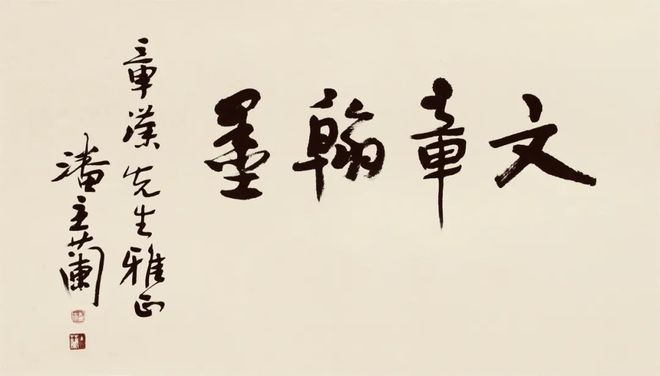 文章翰墨
章汉先生雅正
潘主兰